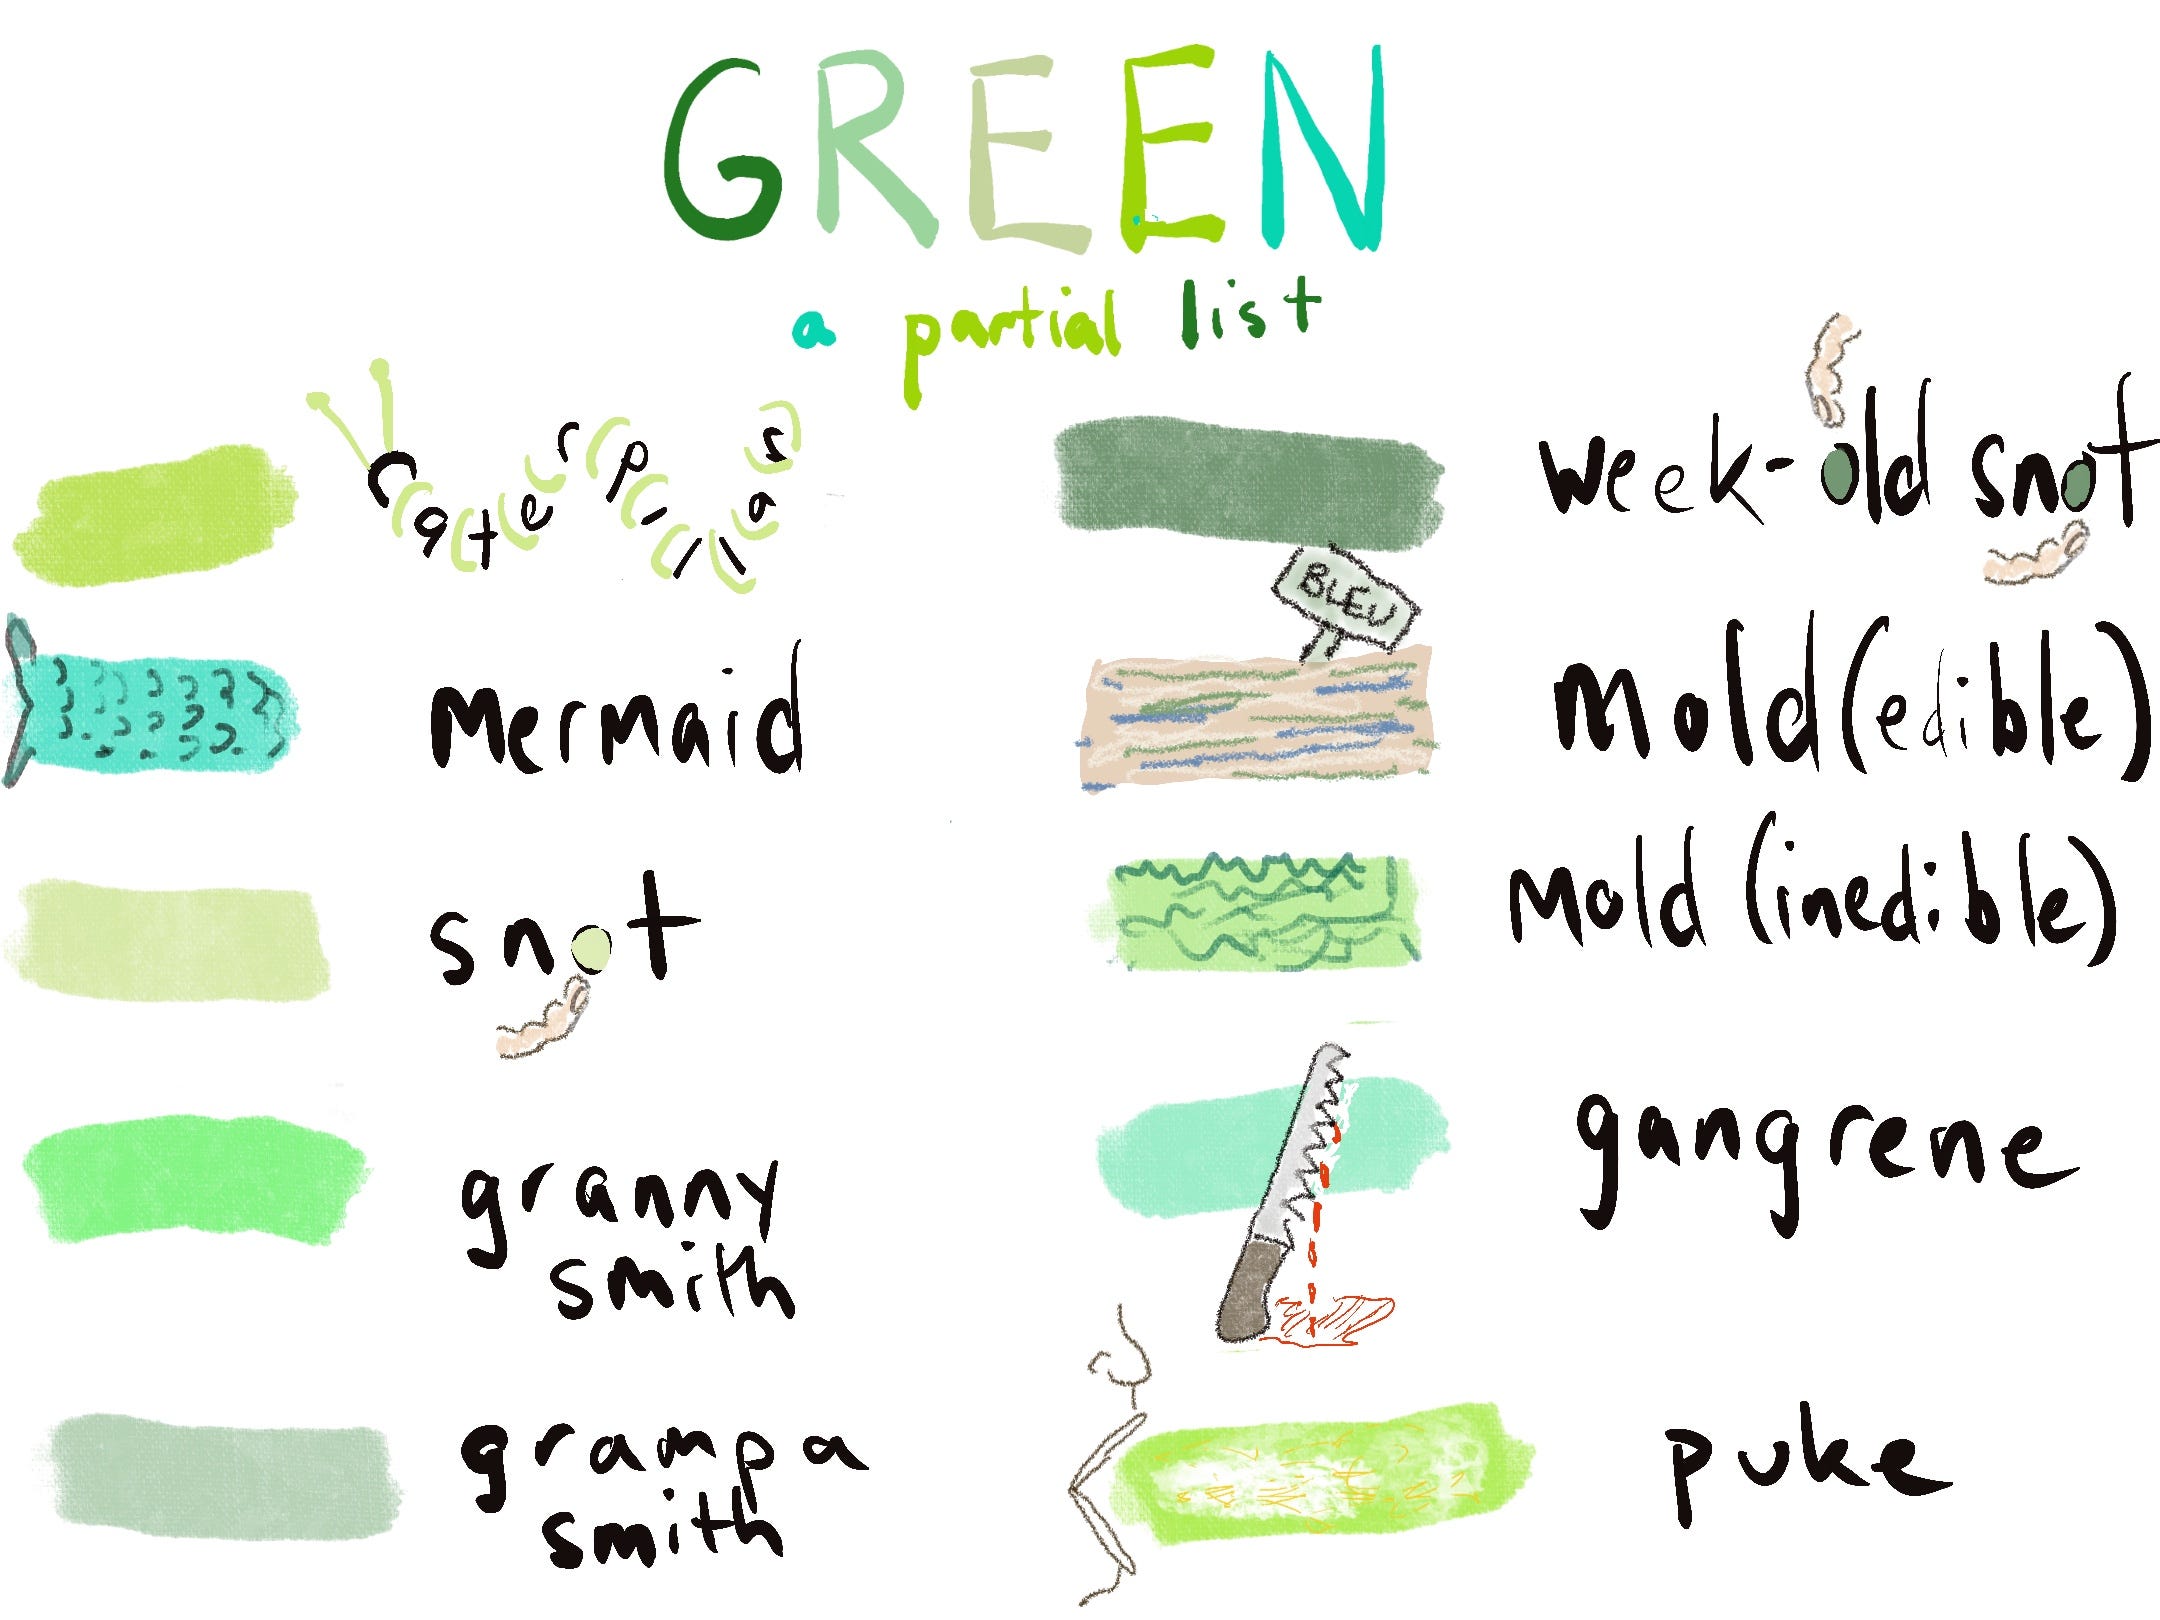 GREEN
a partial list
caterpillas
mermaid
snot
granny
smith
grampa
smith
week-old snot
BLEU
mold (edible)
mold (inedible)
gangrene
puke